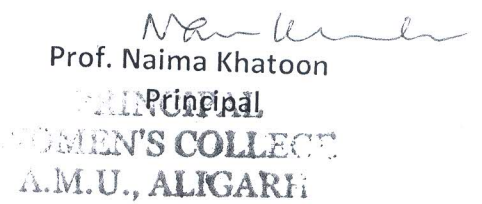 Prof. Naima Khatoon
Principal
PRINCIPAL
WOMEN'S COLLEGE
A.M.U., ALIGARH